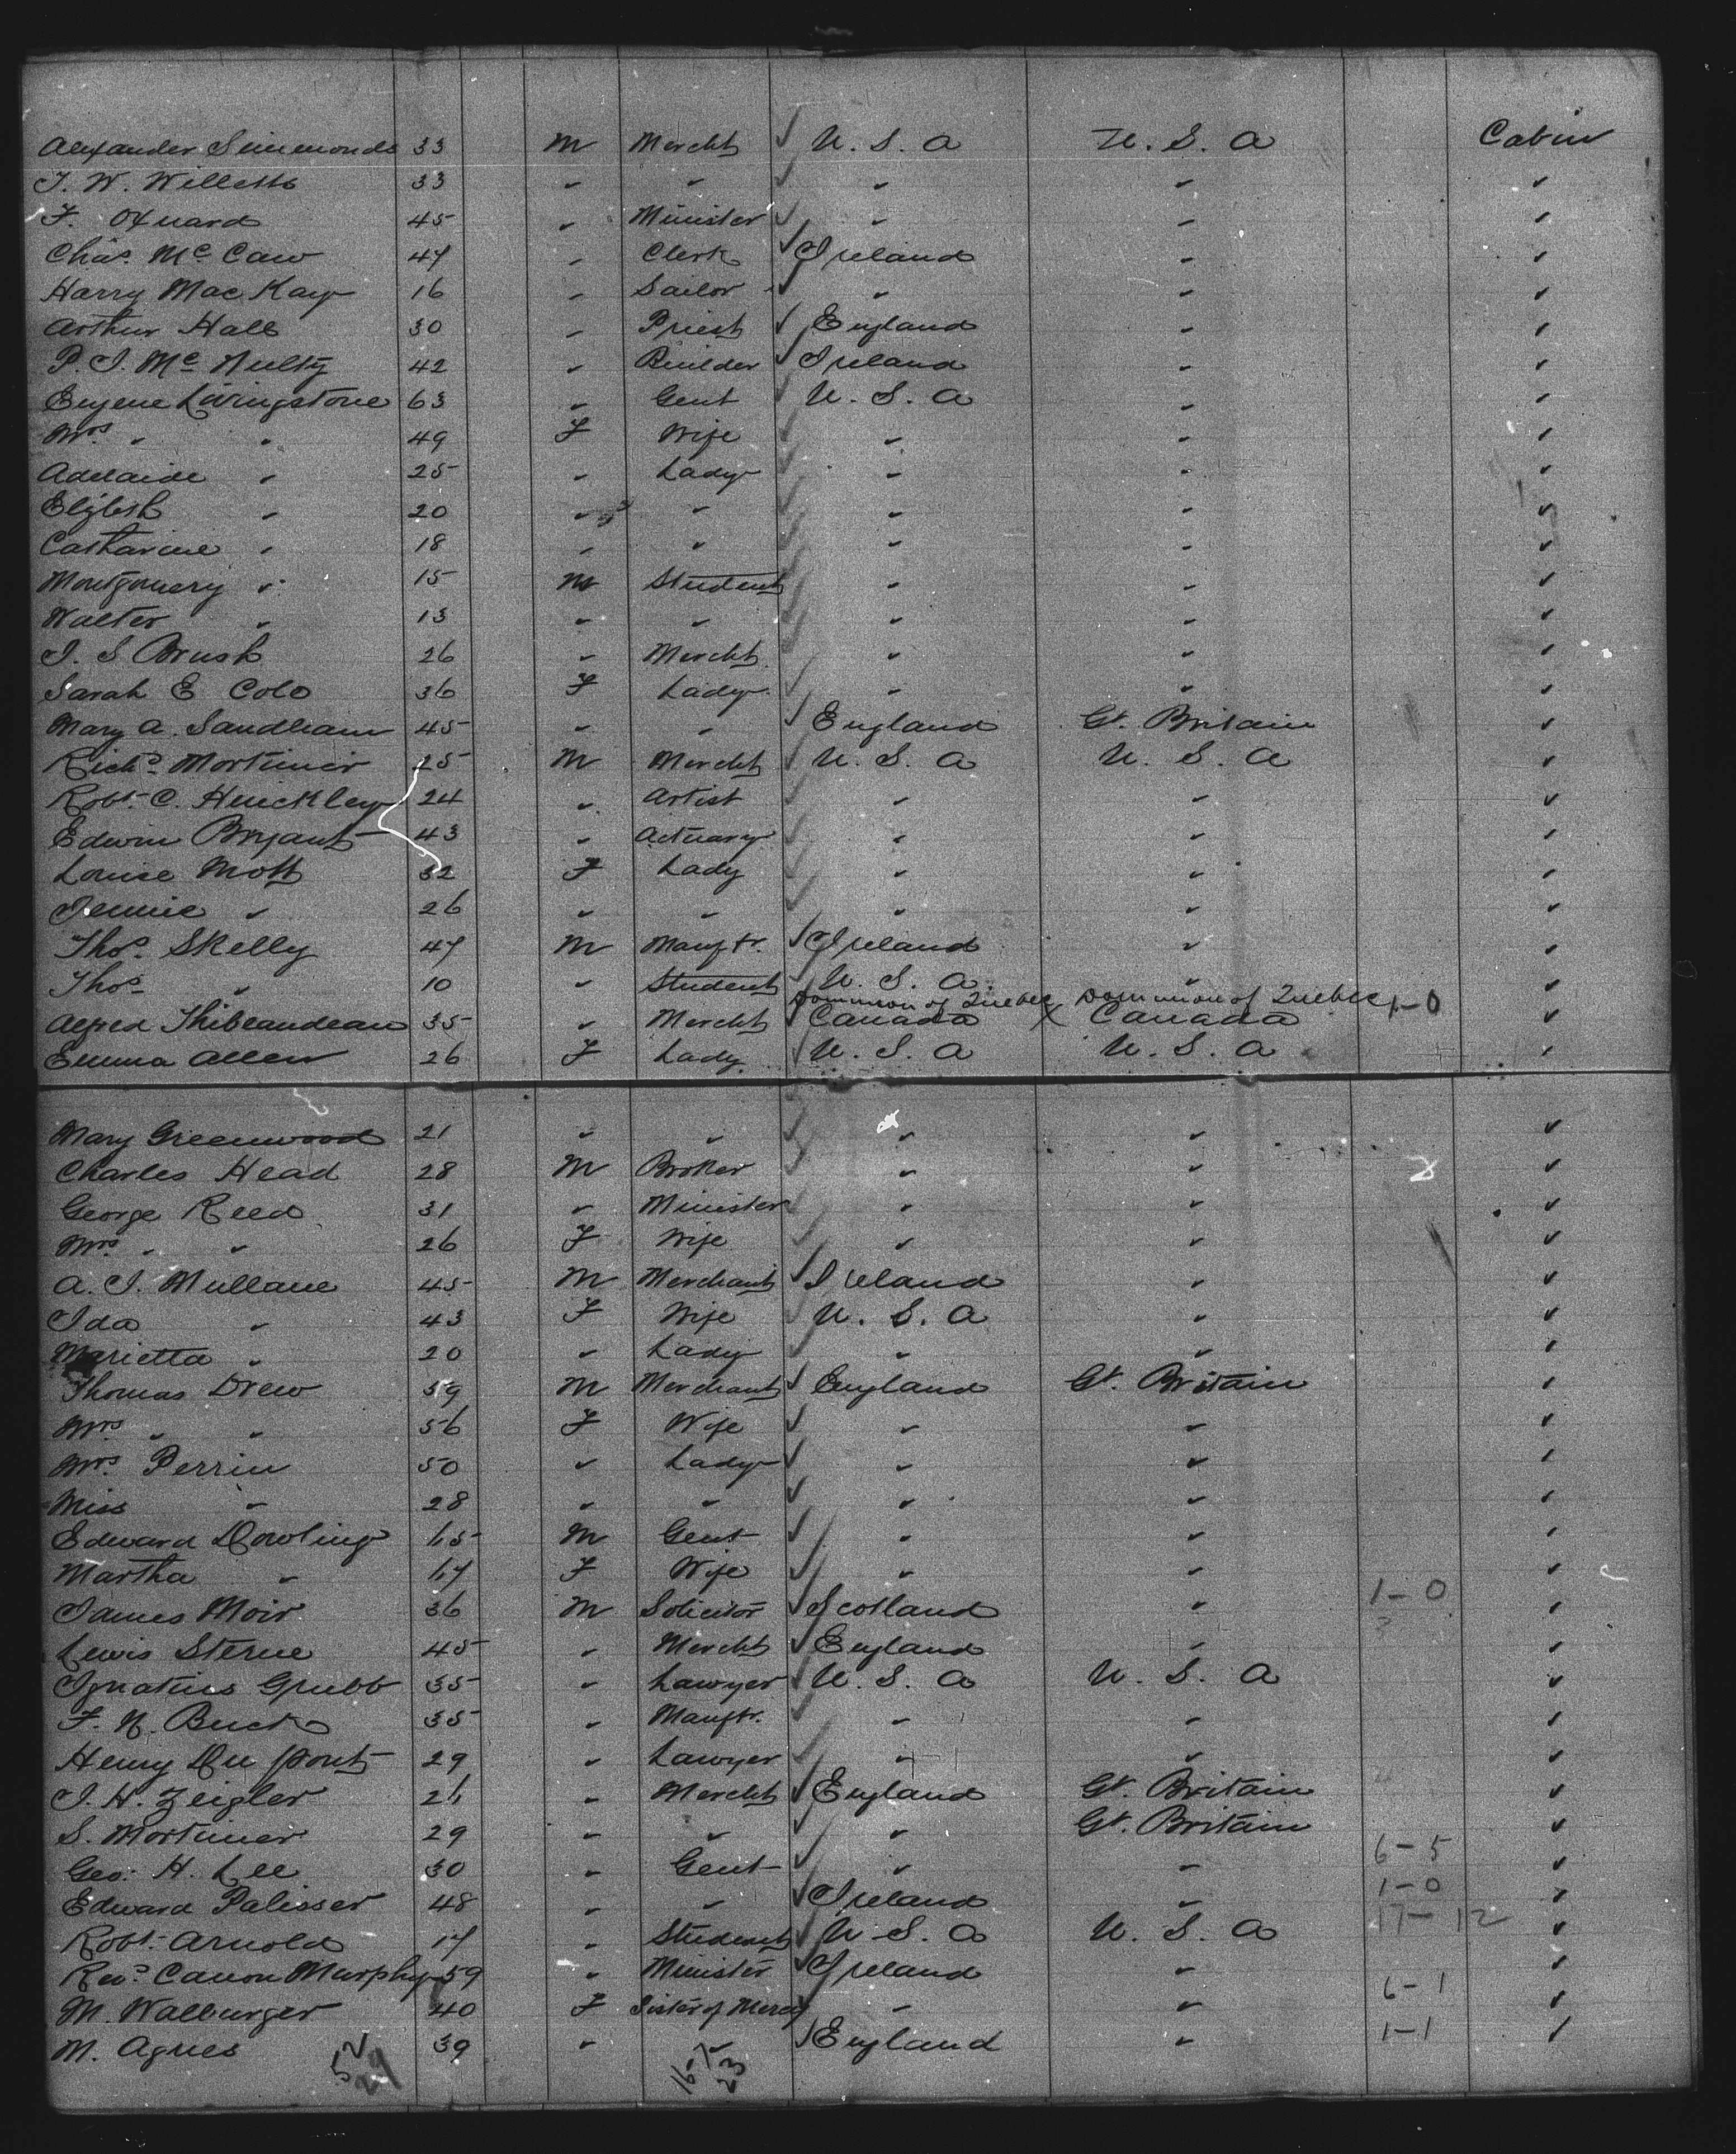 Alexander Simmonds 33 M Mercht ✓ U. S. A U. S. A Cabin
J. W. Willetts 33 " " ✓ " " "
F. Oxnard 45 " Minister ✓ " " "
Chas. Mc Caw 47 " Clerk ✓ Ireland " "
Harry Mac Kay 16 " Sailor ✓ " " "
Arthur Hall 30 " Priest ✓ England " "
P. J. Mc Nulty 42 " Builder ✓ Ireland " "
Eugene Livingstone 63 " Gent ✓ U. S. A " "
Mrs " " 49 F Wife ✓ " " "
Adelaide " 25 " Lady ✓ " " "
Elizbth " 20 " " ✓ " " "
Catharine " 18 " " ✓ " " "
Montgomery " 15 M Student ✓ " " "
Walter " 13 " " ✓ " " "
J. S Brush 26 " Mercht ✓ " " "
Sarah E Cole 36 F Lady ✓ " " "
Mary A. Sandham 45 " " ✓ England Gt. Britain "
Richd Mortimer 25 M Mercht ✓ U. S. A U. S. A "
Robt. C. Hinckley 24 " Artist ✓ " " "
Edwin Bryant 43 " Actuary ✓ " " "
Louise Mott 32 F Lady ✓ " " "
Jennie " 26 " " ✓ " " "
Thos. Skelly 47 M Manftr. ✓ Ireland " "
Thos. " 10 " Student ✓ U. S. A. " "
Dominion of Quebec Dominion of Quebec
Alfred Thibeaudeau 35 " Mercht ✓ Canada X Canada 1-0 "
Emma Allen 26 F Lady ✓ U. S. A U. S. A "
Mary Greenwood 21 " " ✓ " " "
Charles Head 28 M Broker ✓ " " "
George Reed 31 " Minister ✓ " " "
Mrs " " 26 F Wife ✓ " " "
A. J. Mullane 45 M Merchant ✓ Ireland " "
Ida " 43 F Wife ✓ U. S. A " "
Marietta " 20 " Lady ✓ " " "
Thomas Drew 59 M Merchant ✓ England Gt. Britain "
Mrs " " 56 F Wife ✓ " " "
Mrs. Perrin 50 " Lady ✓ " " "
Miss " 28 " " ✓ " " "
Edward Dowling 65 M Gent ✓ " " "
Martha " 67 F Wife ✓ " " "
James Moir 36 M Solicitor ✓ Scotland " 1-0 "
Lewis Sterne 45 " Mercht ✓ England " "
Ignatius Grubb 35 " Lawyer ✓ U. S. A U. S. A "
F. N. Buck 35 " Manftr. ✓ " " "
Henry Du Pont 29 " Lawyer ✓ " " "
J. H. Zeigler 26 " Mercht ✓ England Gt. Britain "
S. Mortimer 29 " " ✓ " Gt. Britain "
Geo. H. Lee 30 " Gent ✓ " " 6-5 "
Edward Palisser 48 " " ✓ Ireland " 1-0 "
Robt. Arnold 17 " Student ✓ U. S. A U. S. A 17-12 "
Revd Canon Murphy 59 " Minister ✓ Ireland " "
M. Walburger 40 F Sister of Mercy " " 6-1 "
M. Agnes 39 " ✓ England " 1-1 "
52 29 16-7 23